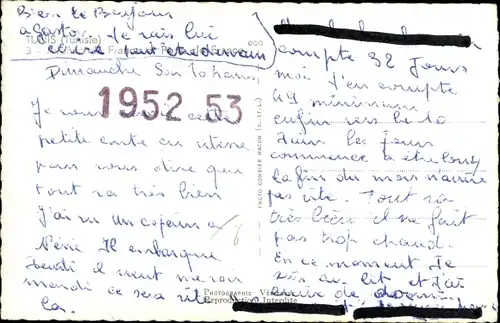 Bien le Bonjour
à Gaston. Je vais lui
écrire peut être demain
TUNIS (Tunisie)
3 -
Dimanche Soir
1952 53
Je vous cette
petite carte en vitesse
pour vous dire que
tout va très bien
J'ai vu un copain a
Néné Il embarque
Jeudi il vient me voir
mardi ce sera
compte 32 Jours
moi J'en compte
49 minimum
enfin vers le 10
Juin les Jours
commence a être long
la fin du mois n'arrive
pas vite. Tout va
très bien il ne fait
pas trop chaud.
En ce moment Je
suis au lit et J'ai
envie de dormir
PHOTO COMBIER MACON (S.-et-L.)
Photographie Véritable
Reproduction Interdite